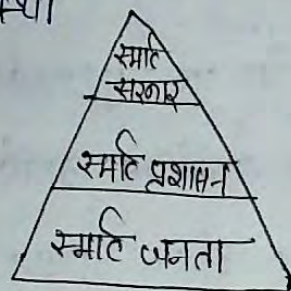 स्मार्ट
सरकार
स्मार्ट प्रशासन
स्मार्ट जनता